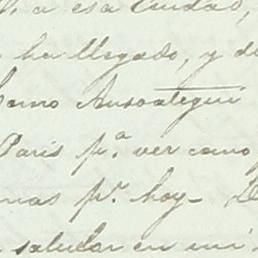 a esa Ciudad,
ha llegado, y
como Ansoategui
Paris p.ª ver como
mas p.r hoy_
saludar en mi